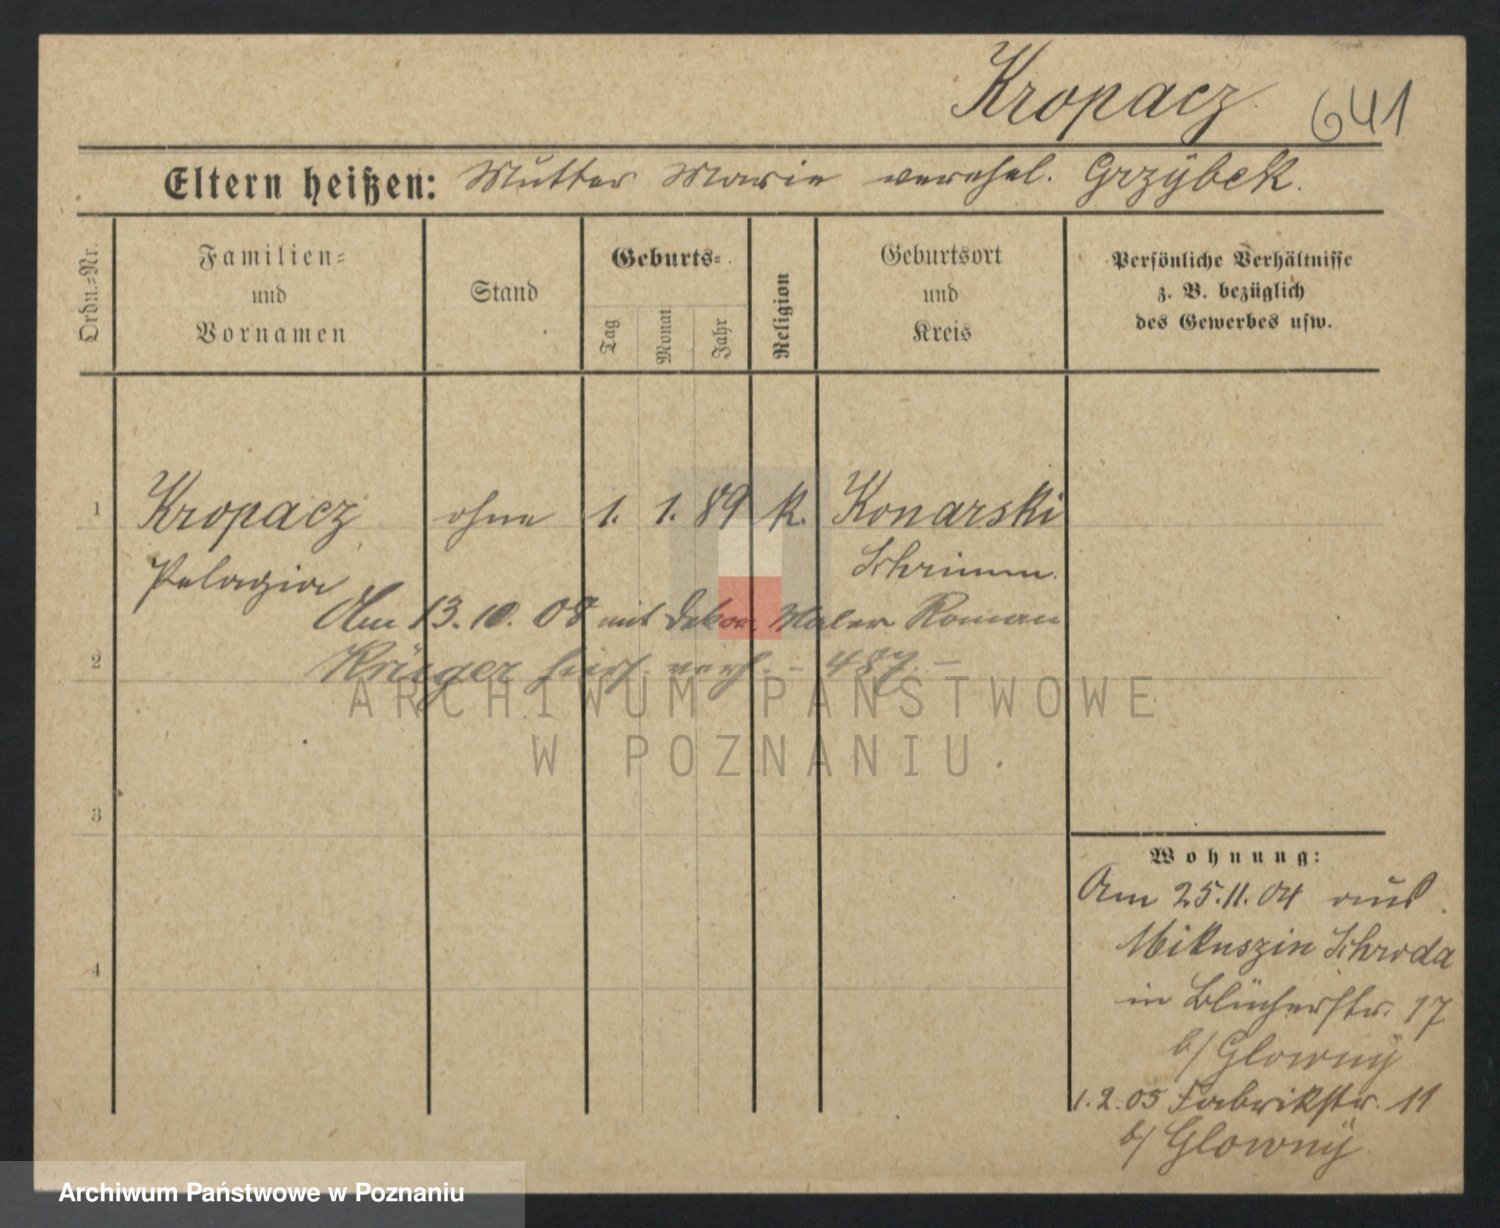 Kropacz 641
Eltern heißen: Mutter Marie verehel. Grzÿbek.
Ordn.=Nr.
Familien=
und
Vornamen
Stand
Geburts=
Tag
Monat
Jahr
Religion
Geburtsort
und
Kreis
Persönliche Verhältnisse
z. B. bezüglich
des Gewerbes usw.
1 Kropacz ohne 1. 1. 89 k. Konarski
Pelagia Schrimm.
Am 13.10.08 mit Dekor. Maler Roman
2 Krüeger hier verh. - 487. -
ARCHIWUM PAŃSTWOWE
W POZNANIU
3
4
Wohnung:
Am 25.11.04 aus
Mikuszin Schroda
in Blücherstr. 17
b/ Glownÿ
1.2.05 Fabrikstr. 11
b/ Glownÿ
Archiwum Państwowe w Poznaniu